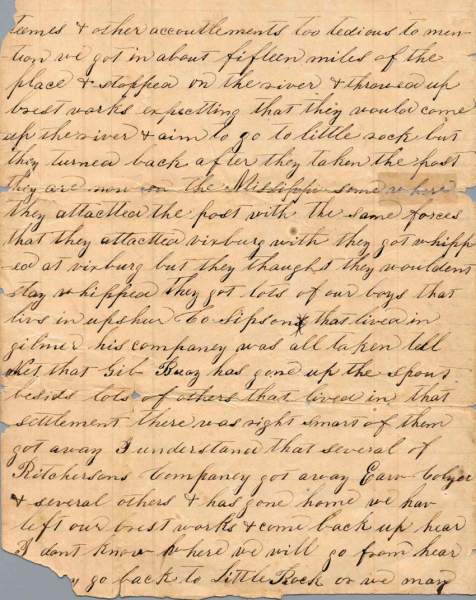 teems & other accoutlements too tedious to men-
tion we got in about fifteen miles of the
place & stopped on the river & throwed up
brest works expectting that they would come
up the river & aim to go to little rock but
they turned back after they taken the post
they are now on the Missippi some where
they attactted the post with the same forces
that they attactted vixburg with they got whipp
ed at vixburg but they thought they wouldent
stay whipped they got lots of our boys that
livs in upshur Co Sipson that lived in
gilmer his companey was all taken tell
that Gib Buaz has gone up the spout
besids lots of others that lived in that
settlement there was right smart of them
got away I understand that several of
Ritchersons Companey got away Earv
& several others & has gone home we hav
left our brest works & come back up hear
I dont know where we will go from hear
go back to Little Rock or we may